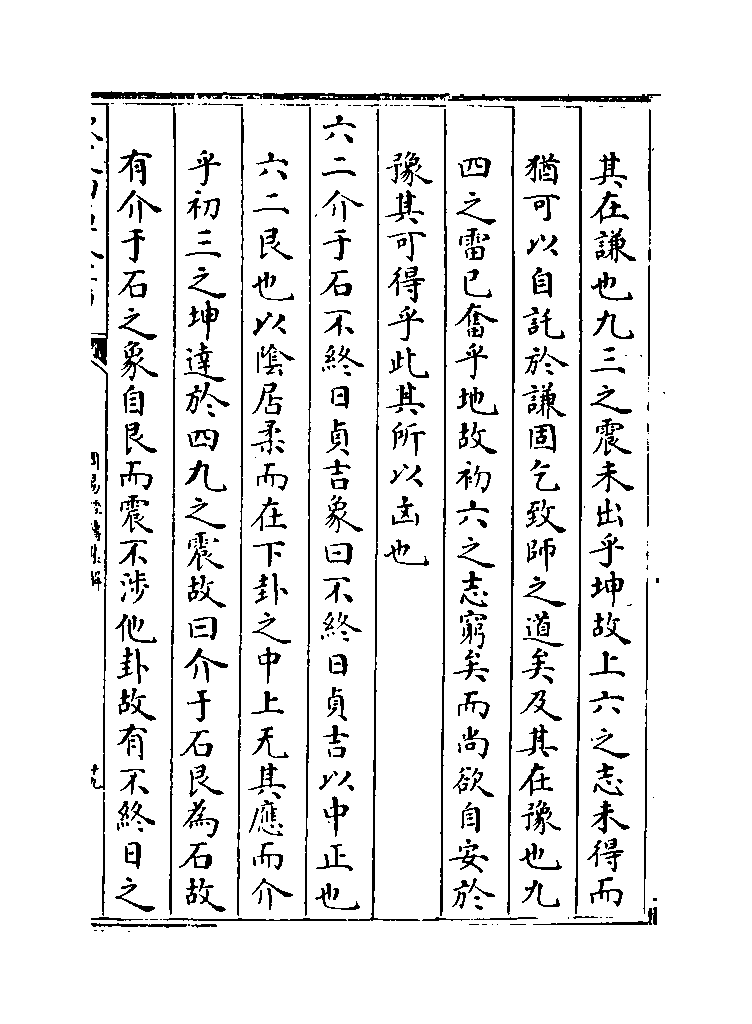 其在謙也九三之震未出乎坤故上六之志未得而
猶可以自託於謙固乞致師之道矣及其在豫也九
四之雷已奮乎地故初六之志窮矣而尚欲自安於
豫其可得乎此其所以凶也
六二介于石不終日貞吉象曰不終日貞吉以中正也
六二艮也以陰居柔而在下卦之中上无其應而介
乎初三之坤達於四九之震故曰介于石艮為石故
有介于石之象自艮而震不涉他卦故有不終日之